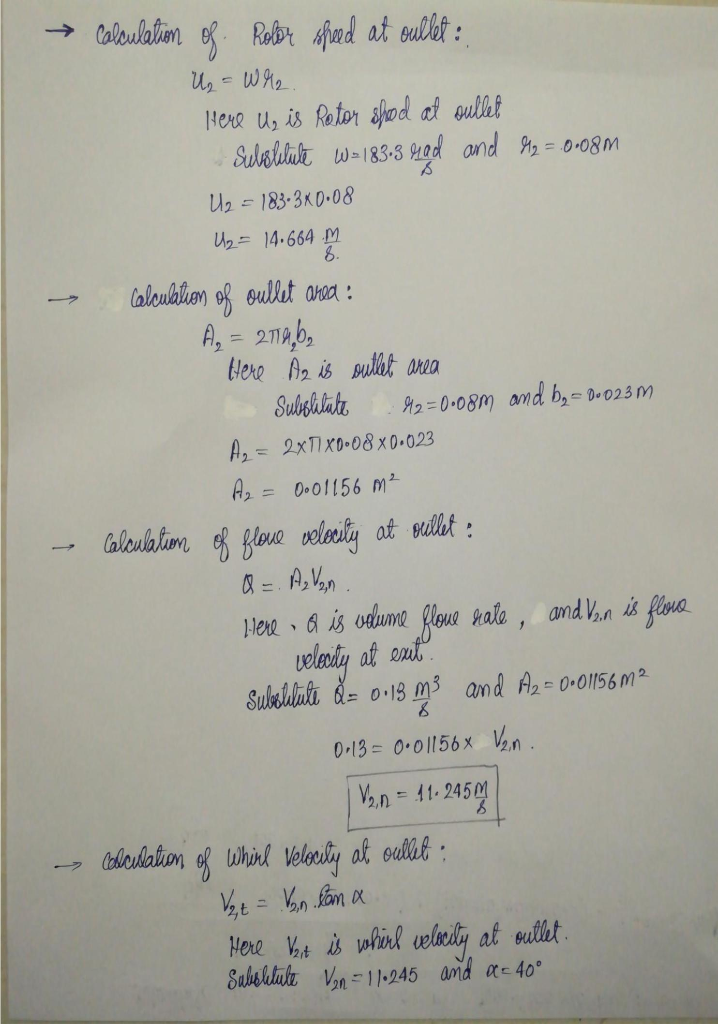 → Calculation of Rotor speed at outlet :
u₂ = ωr₂.
Here u₂ is Rotor speed at outlet
Substitute ω=183.3 rad/s and r₂ = 0.08m
u₂ = 183.3×0.08
u₂ = 14.664 m/s.
→ Calculation of outlet area :
A₂ = 2πr₂b₂
Here A₂ is outlet area
Substitute r₂=0.08m and b₂=0.023m
A₂ = 2×π×0.08×0.023
A₂ = 0.01156 m²
→ Calculation of flow velocity at outlet :
Q = A₂V₂,n.
Here, Q is volume flow rate, and V₂,n is flow
velocity at exit.
Substitute Q = 0.13 m³/s and A₂=0.01156m²
0.13 = 0.01156× V₂,n.
V₂,n = 11.245 m/s
→ Calculation of Whirl Velocity at outlet :
V₂,t = V₂,n tan α
Here V₂,t is whirl velocity at outlet.
Substitute V₂n = 11.245 and α=40°